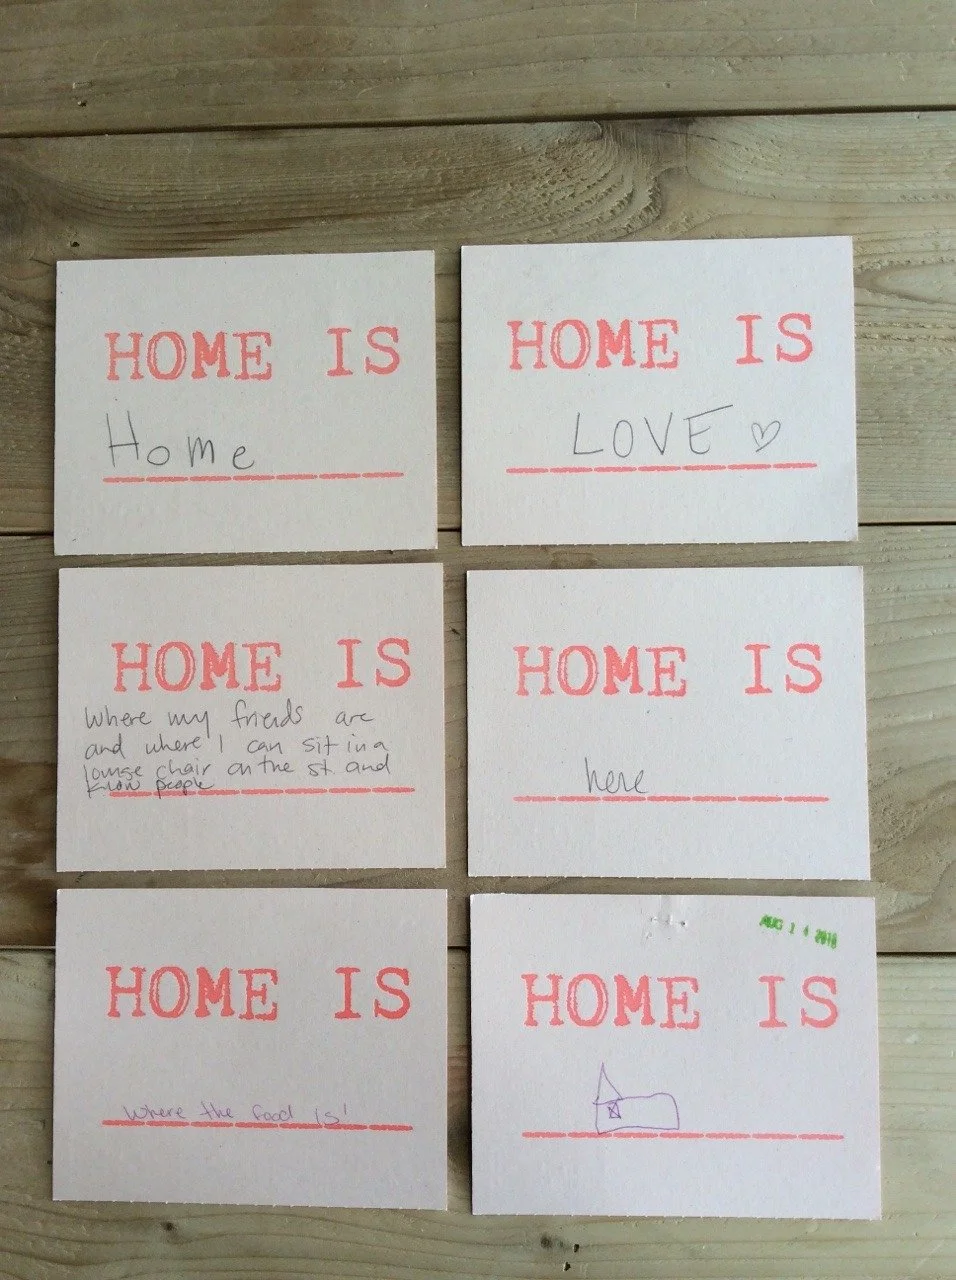 HOME IS
Home
HOME IS
LOVE ♡
HOME IS
Where my friends are
and where I can sit in a
lounge chair on the st. and
know people
HOME IS
here
HOME IS
Where the food is!
AUG 14
HOME IS